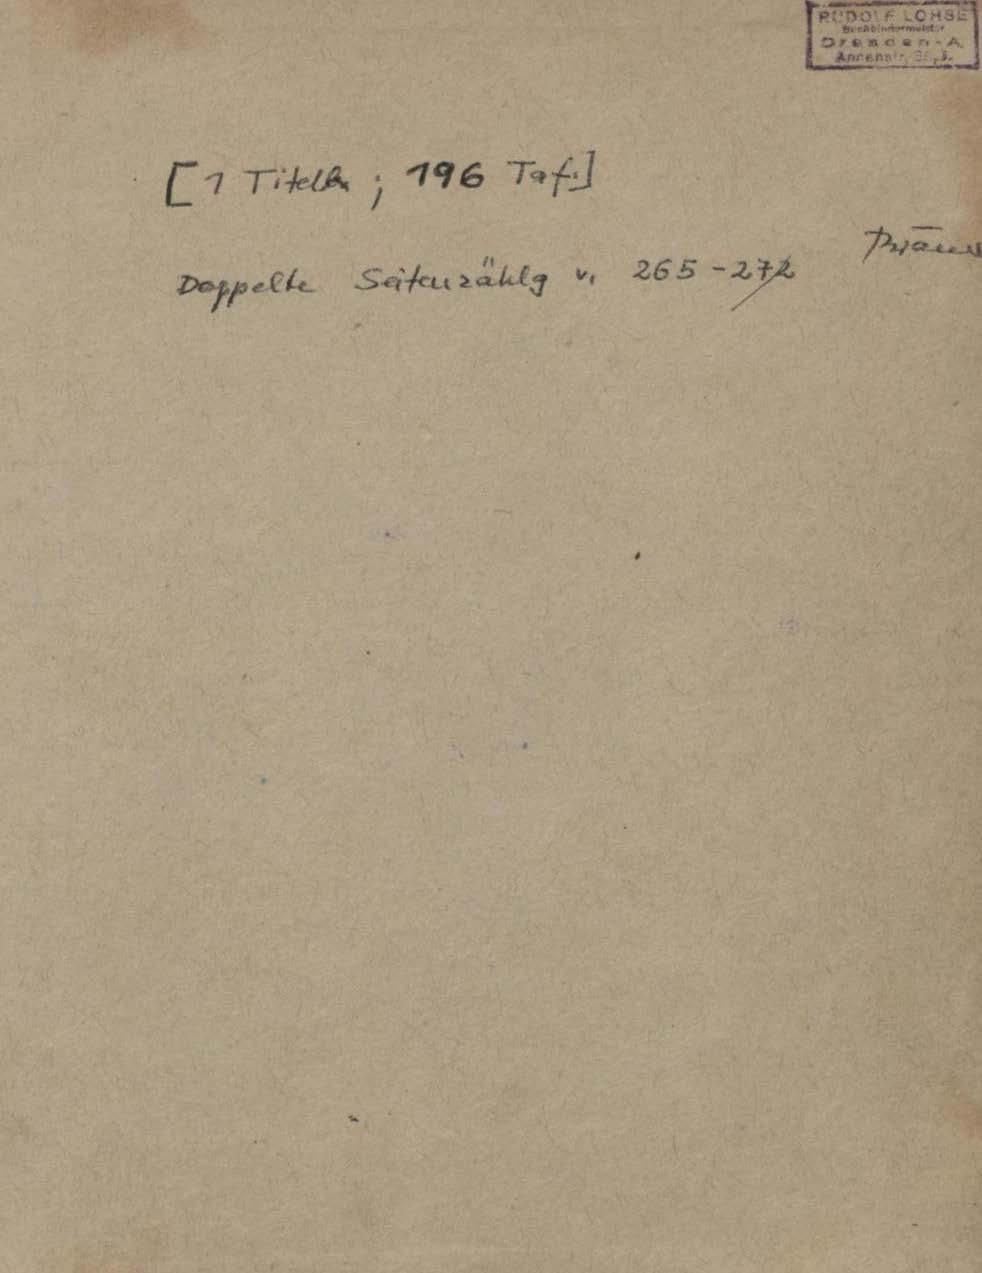 RUDOLF LOHSE
Buchbindermeister
Dresden-A.
Annenstr.
[1 Titelbn ; 196 Taf.]
Doppelte Seitenzählg v. 265-272